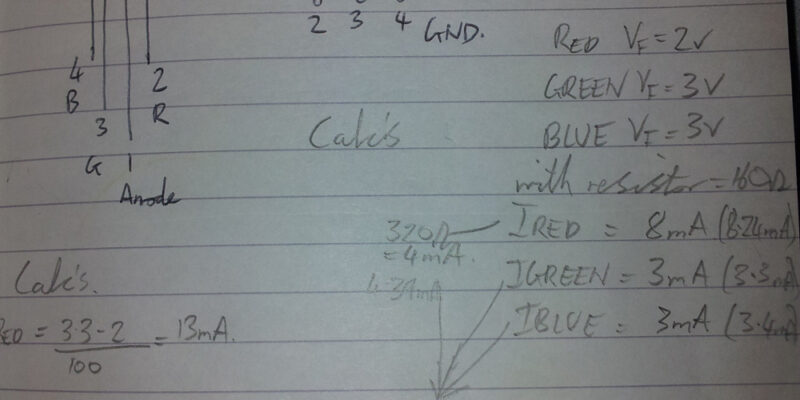 2 3 4 GND.
4
B
3
G
1
Anode
2
R
RED VF = 2V
GREEN VF = 3V
BLUE VF = 3V
with resistor = 160Ω
Calc's
320Ω
= 4mA.
4.34mA
IRED = 8mA (8.24mA)
IGREEN = 3mA (3.3mA)
IBLUE = 3mA (3.4mA)
Calc's.
RED = 3.3-2 = 13mA.
100